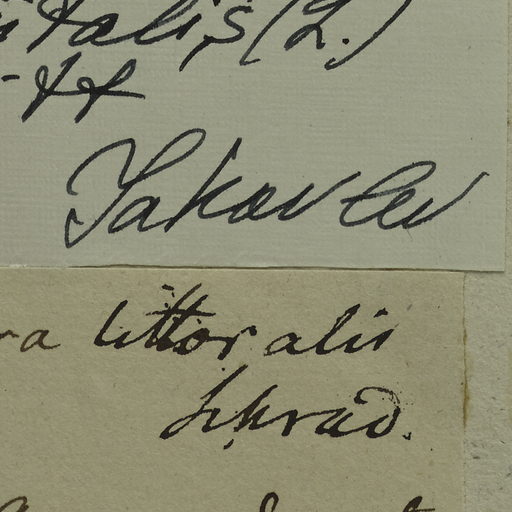 talis (L.)
Yakovlev
ra littoralis
Schrad.